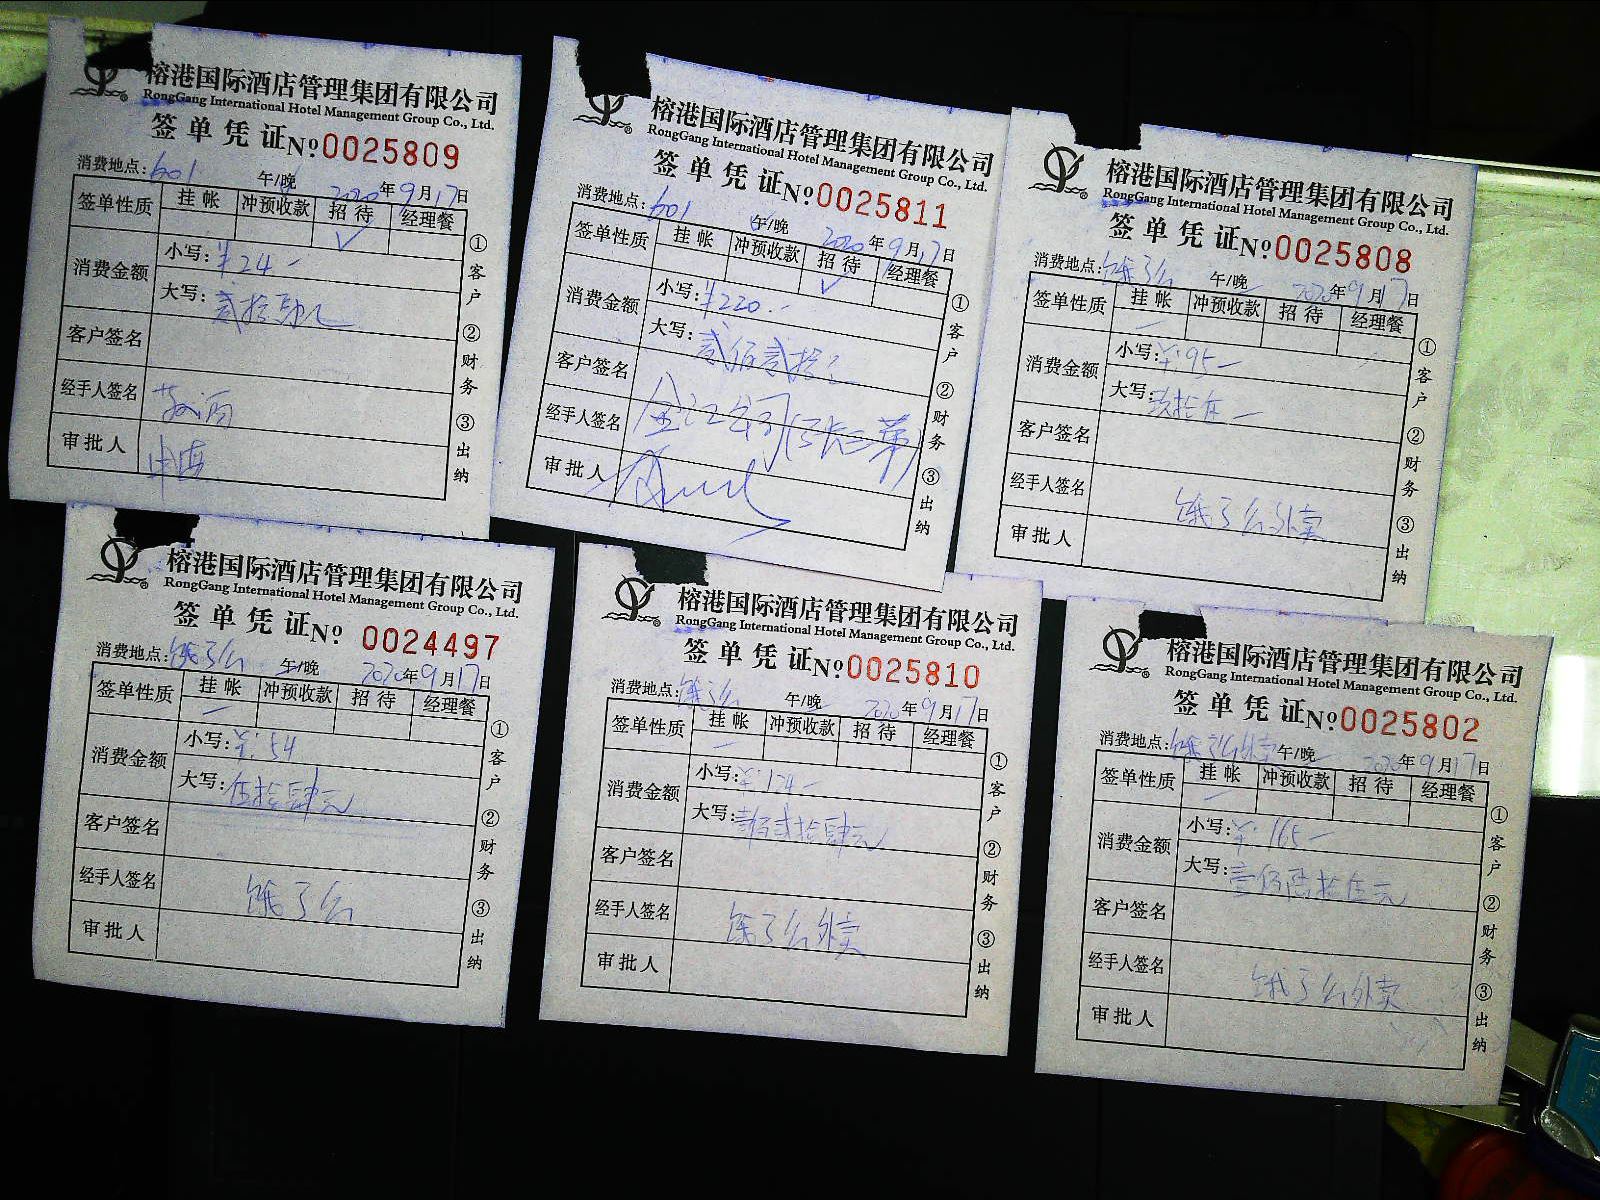 榕港国际酒店管理集团有限公司
RongGang International Hotel Management Group Co., Ltd.
签单凭证 Nº 0025809
消费地点: 601 午/晚 2020年9月17日
签单性质 挂帐 冲预收款 招待 经理餐
✓
消费金额 小写: ¥24-
大写: 贰拾
客户签名
经手人签名
审批人
①客户 ②财务 ③出纳
榕港国际酒店管理集团有限公司
RongGang International Hotel Management Group Co., Ltd.
签单凭证 Nº 0025811
消费地点: 601 午/晚 2020年9月17日
签单性质 挂帐 冲预收款 招待 经理餐
✓
消费金额 小写: ¥220.-
大写: 贰佰贰拾元
客户签名
经手人签名
审批人
①客户 ②财务 ③出纳
榕港国际酒店管理集团有限公司
RongGang International Hotel Management Group Co., Ltd.
签单凭证 Nº 0025808
消费地点: 饿了么 午/晚 2020年9月17日
签单性质 挂帐 冲预收款 招待 经理餐
消费金额 小写: ¥:95-
大写: 玖拾伍
客户签名
经手人签名 饿了么外卖
审批人
①客户 ②财务 ③出纳
榕港国际酒店管理集团有限公司
RongGang International Hotel Management Group Co., Ltd.
签单凭证 Nº 0024497
消费地点: 饿了么 午/晚 2020年9月17日
签单性质 挂帐 冲预收款 招待 经理餐
消费金额 小写: ¥:54
大写: 伍拾肆元
客户签名
经手人签名 饿了么
审批人
①客户 ②财务 ③出纳
榕港国际酒店管理集团有限公司
RongGang International Hotel Management Group Co., Ltd.
签单凭证 Nº 0025810
消费地点: 饿了么 午/晚 2020年9月17日
签单性质 挂帐 冲预收款 招待 经理餐
消费金额 小写: ¥:124-
大写: 壹佰贰拾肆元
客户签名
经手人签名 饿了么外卖
审批人
①客户 ②财务 ③出纳
榕港国际酒店管理集团有限公司
RongGang International Hotel Management Group Co., Ltd.
签单凭证 Nº 0025802
消费地点: 饿了么外卖 午/晚 2020年9月17日
签单性质 挂帐 冲预收款 招待 经理餐
消费金额 小写: ¥:165-
大写: 壹佰陆拾伍元
客户签名
经手人签名 饿了么外卖
审批人
①客户 ②财务 ③出纳